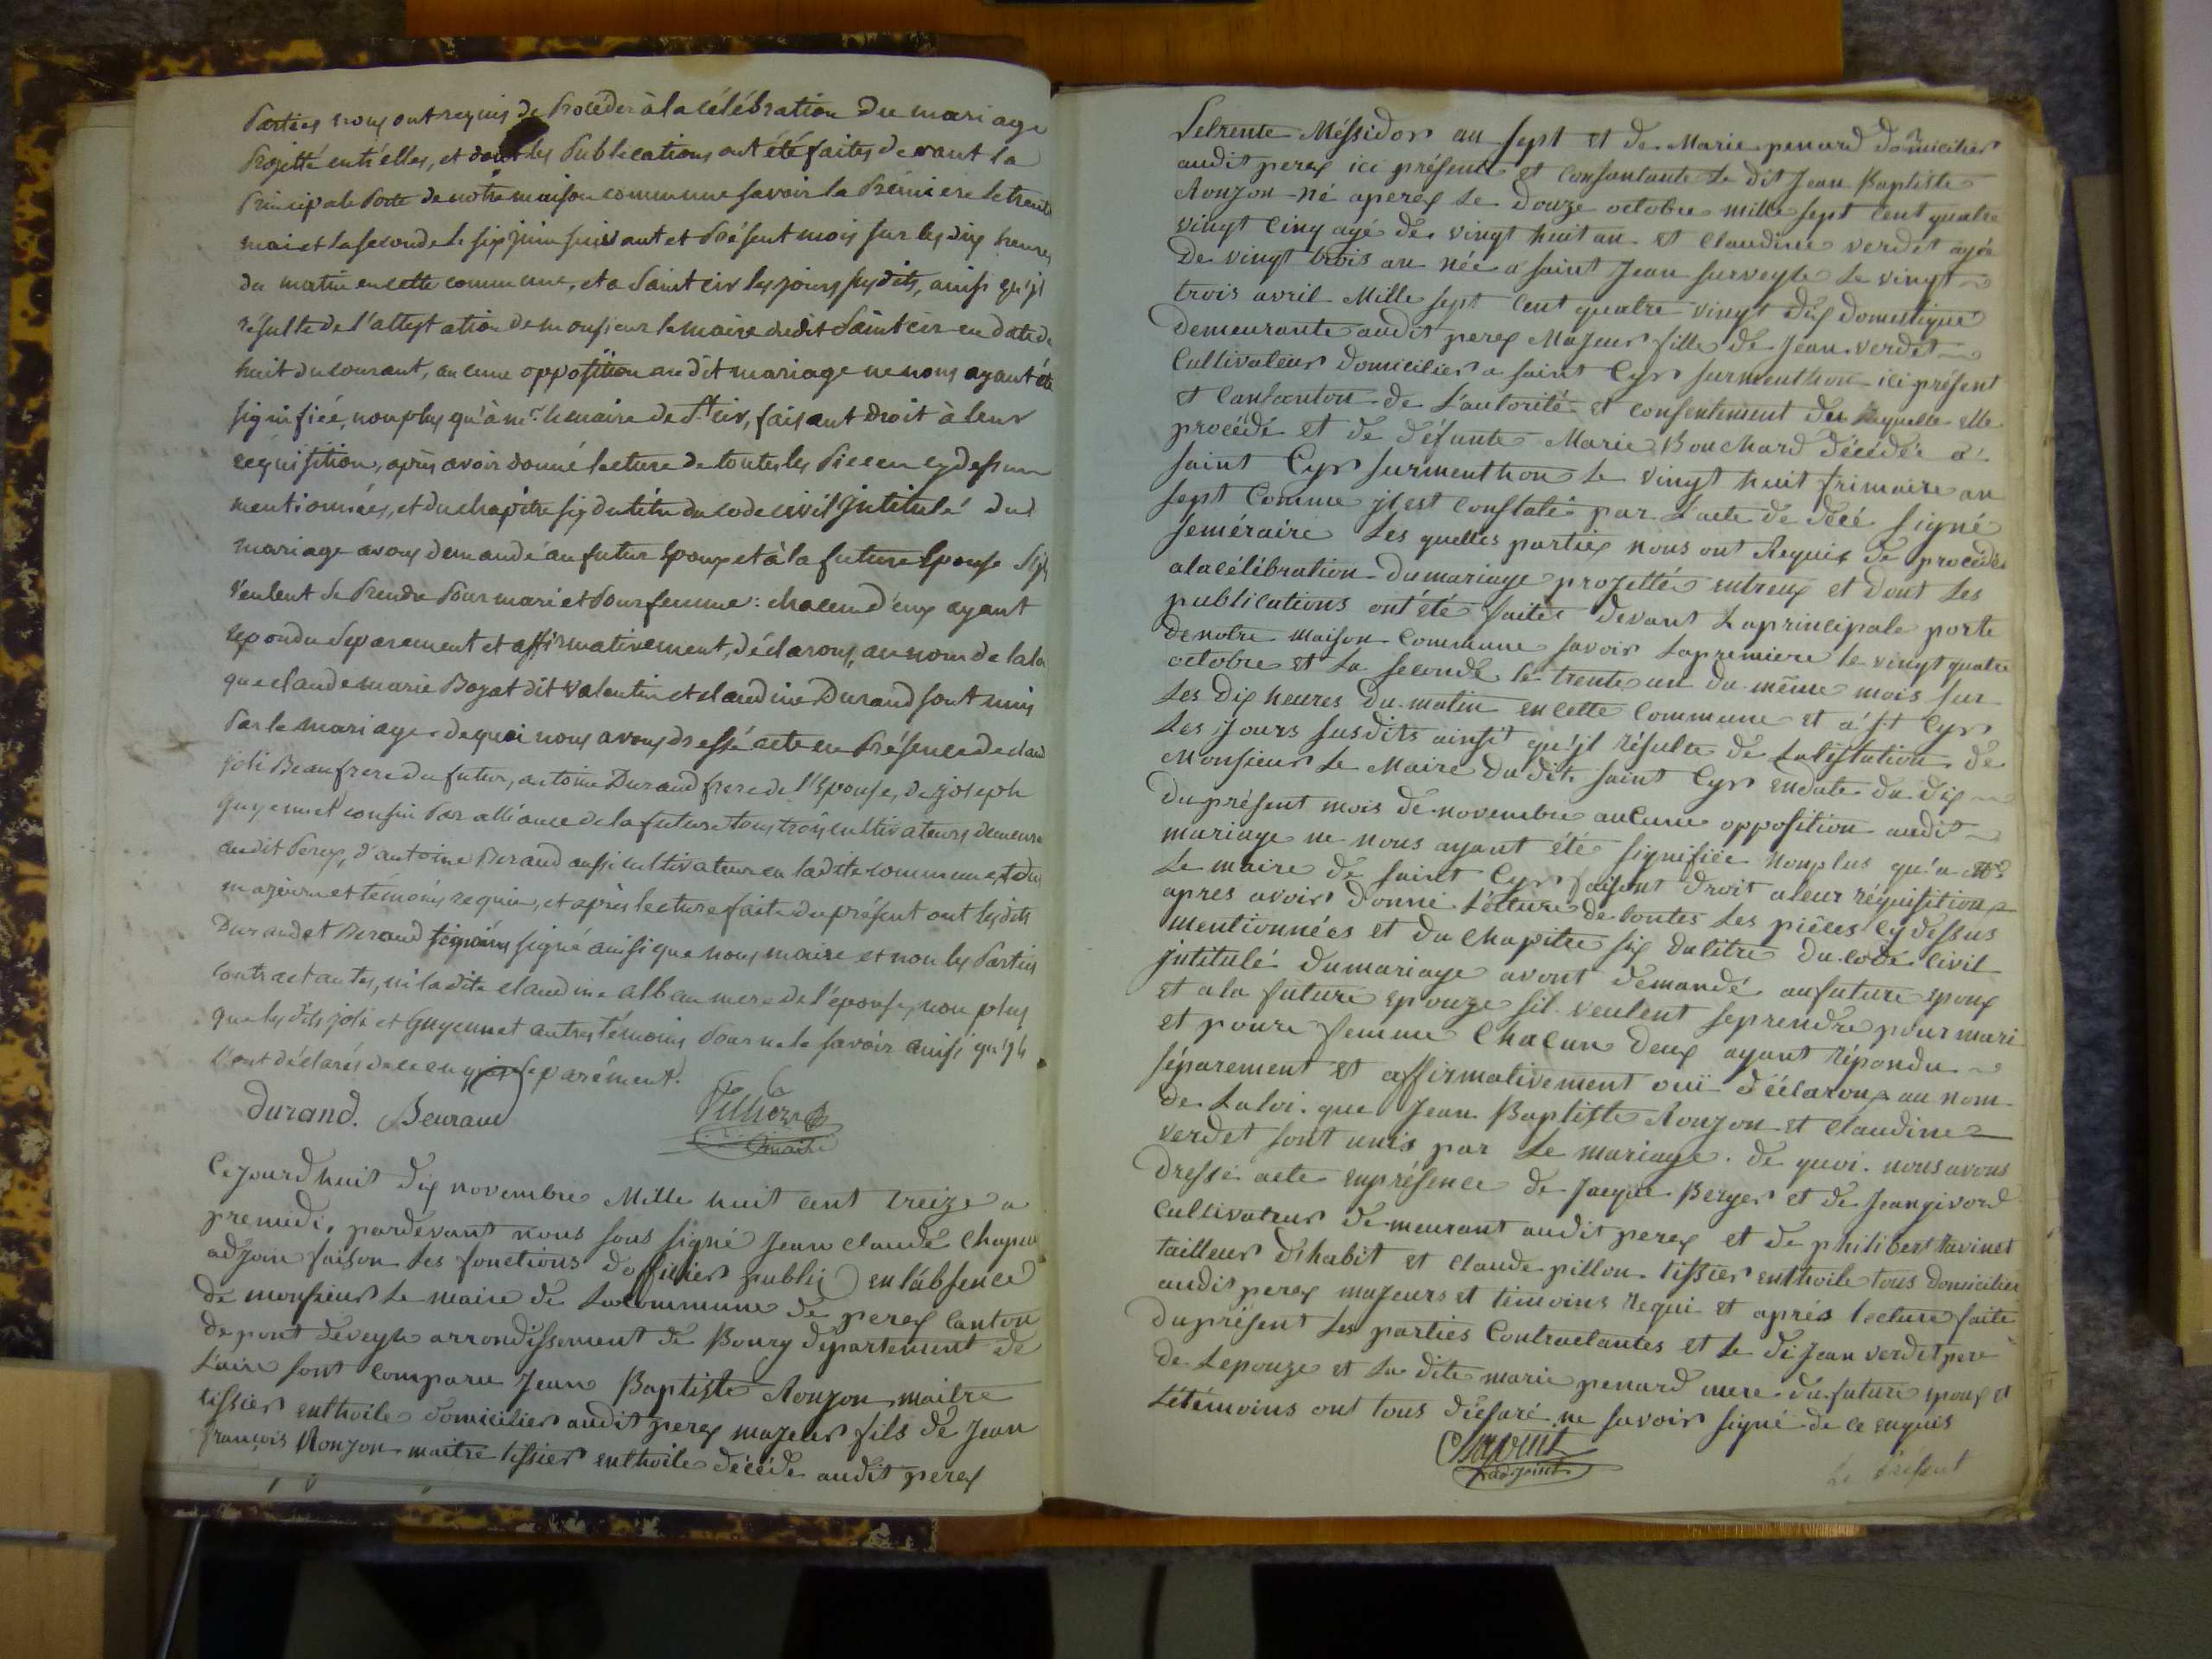 Parties nous ont requis de Procéder à la célébration du mariage
Projetté entr'elles, et dont les Publications ont été faites devant la
Principale Porte de notre maison commune savoir la Prémiere le trente
mai et la seconde le six juin suivant et Présent mois sur les dix heures
du matin en cette commune, et a Saint cir les jours susdits, ainsi qu'jl
résulte de l'attestation de monsieur le maire dudit Saint cir en date du
huit du courant, aucune opposition au dit mariage ne nous ayant été
signifiée, non plus qu'à mr. le maire de St. cir, faisant droit à leur
réquisition, après avoir donné lecture de toutes les Pieces cy dessus
mentionnées, et du chapitre six du titre du code civil jntitulé du
mariage avons demandé au futur Epoux et à la future Epouse s'ils
veulent se Prendre Pour mari et Pour femme : chacun d'eux ayant
repondu Separement et affirmativement, déclarons, au nom de la loi
que claude marie Bozat dit Valentin et claudine Durand sont unis
Par le mariage. de quoi nous avons dressé acte en Présence de claude
joli Beaufrere du futur, antoine Durand frere de l'Epouse, de joseph
guyennet cousin Par alliance de la future tous trois cultivateurs demeurant
audit Perex, d'antoine Beraud aussi cultivateur en la dite commune, tous
majeurs et témoins requis, et après lecture faite du présent ont lesdits
Durand et Beraud témoins signé ainsi que nous maire et non les Parties
contractantes, ni la dite claudine alban mere de l'épouse, non plus
que lesdits joli et Guyennet autres témoins Pour ne le savoir ainsi qu'jls
l'ont déclarés de ce enquis Separément.
Durand. Beuraud Villiers
maire
Cejourdhuit dix novembre Mille huit cent treize a
premidi, pardevant nous sous signé Jean claude Chapuis
adjoin faison les fonctions d'officier public en l'absence
de monsieur le maire de la commune de perex Canton
de pont deveyle arrondissement de Bourg département de
L'ain sont comparu Jean Baptiste Ronjon maitre
tissier enthoile domicilier audit perex majeur fils de Jean
françois Ronjon maitre tissier enthoile décédé audit perex
Le trente Méssidor an sept et de Marie penard domicilier
audit perex ici présente et consantante Le dit Jean Baptiste
Ronjon né a perex Le douze octobre mille sept cent quatre
vingt cinq agé de vingt huit an et Claudine verdet agée
De vingt trois an née a saint Jean surveyle Le vingt
trois avril Mille sept Cent quatre vingt dix domestique
demeurante audit perex Majeur fille de Jean verdet
Cultivateur domicilier a saint Cyr surmenthon ici présent
et consanton de L'autorité et consentement du Laquelle elle
procédé et de défunte Marie Bouchard décédée a
saint Cyr surmenthon Le vingt huit frimaire an
sept Comme jl est constaté par L'acte de décé signé
seméraire Les quelles parties nous ont Requis de procédé
a la célébration du mariage projetté entreux et dont Les
publications ont été faites devant La principale porte
de notre maison Commune savoir La premiere le vingt quatre
octobre et La seconde le trente un du même mois sur
Les dix heures du matin en cette Commune et a St Cyr
Les Jours susdits ainsit qu'jl résulte de Latestation de
Monsieur Le Maire du dit saint Cyr endate du dix
du présent mois de novembre aucune opposition audit
mariage ne nous ayant été signifiée nonplus qu'a Mr.
Le maire de saint Cyr faisant droit a leur réquisition
apres avoir donné Lecture de toutes Les pièces cy dessus
Mentionnées et du Chapitre six du titre du code Civil
jntitulé du mariage avont demandé au future epoux
et a la future epouze sil veulent seprendre pour mari
et poure femme Chacun deux ayant répondu
séparement et affirmativement ouï déclarons au nom
de La loi que Jean Baptiste Ronjon et Claudine
verdet sont unis par Le mariage. de quoi nous avons
dressé acte en présence de Jacque Berger et de Jean givord
Cultivateur demeurant audit perex et de philibert tavinet
tailleur d'habit et Claude pillon tissier enthoile tous domicilier
audit perex majeurs et temoins requi et aprés lecture faite
du présent Les parties Contractantes et Le di Jean verdet pere
de Lepouze et La dite marie penard mere du future epoux et
Les témoins ont tous déclaré ne savoir signé de ce enquis
Chapuis
adjoint
Le Présent